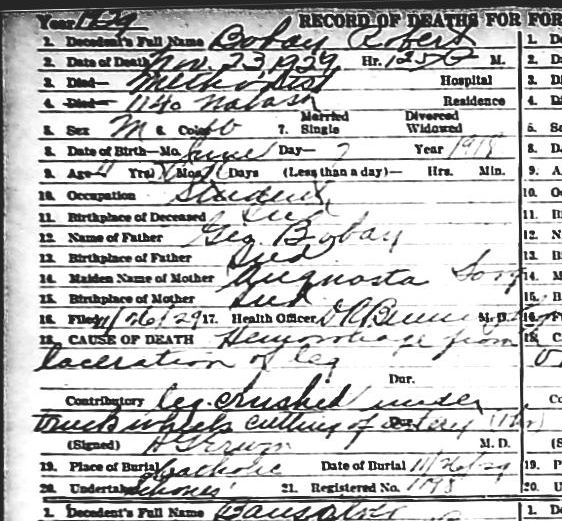 Year 1929 RECORD OF DEATHS FOR FOR
1. Decedent's Full Name Bobay Robert 1. De
2. Date of Death Nov. 23 1929 Hr. M. 2. D
3. Died— Methodist Hospital 3. Di
4. Died— 1140 Wabash Residence 4. Di
5. Sex M 6. Color W 7. Married Single Divorced Widowed 5. Se
8. Date of Birth—Mo. June Day— 7 Year 1918 8. D
9. Age— 11 Yrs. Mos. Days (Less than a day)— Hrs. Min. 9. A
10. Occupation Student 10. O
11. Birthplace of Deceased Ind 11. Bi
12. Name of Father Geo. Bobay 12. N
13. Birthplace of Father Ind 13. B
14. Maiden Name of Mother Augnosta 14. M
15. Birthplace of Mother Ind 15. B
16. Filed 11/26/29 17. Health Officer M. D. 16. F
18. CAUSE OF DEATH Hemorrhage from 18. C
laceration of leg
Dur.
Contributory leg crushed under Co
truck wheels cutting of artery Dur.
(Signed) M. D. (S
19. Place of Burial Catholic Date of Burial 11/26/29 19. P
20. Undertaker Schones' 21. Registered No. 1098 20. U
1. Decedent's Full Name 1. De